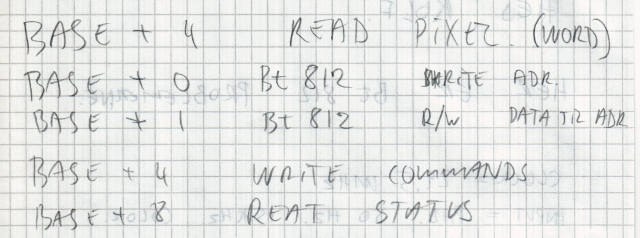 BASE + 4 READ PIXEL. (WORD)
BASE + 0 Bt 812 WRITE ADR.
BASE + 1 Bt 812 R/W DATA TIL ADR
BASE + 4 WRITE COMMANDS
BASE + 8 REAT STATUS